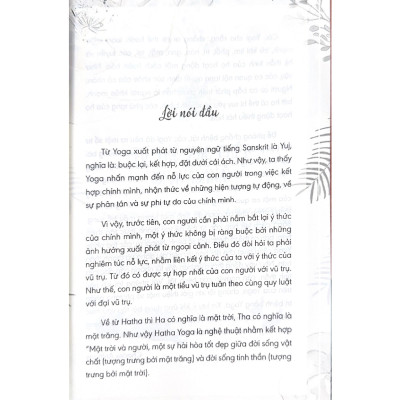 Lời nói đầu
Từ Yoga xuất phát từ nguyên ngữ tiếng Sanskrit là Yuj,
nghĩa là: buộc lại, kết hợp, đặt dưới cái ách. Như vậy, ta thấy
Yoga nhấn mạnh đến nỗ lực của con người trong việc kết
hợp chính mình, nhận thức về những hiện tượng tự động, về
sự phân tán và sự phi tự do của chính mình.
Vì vậy, trước tiên, con người cần phải nắm bắt lại ý thức
của chính mình, một ý thức không bị ràng buộc bởi những
ảnh hưởng xuất phát từ ngoại cảnh. Điều đó đòi hỏi ta phải
nghiêm túc nỗ lực, nhằm liên kết ý thức của ta với ý thức của
vũ trụ. Từ đó có được sự hợp nhất của con người với vũ trụ.
Như thế, con người là một tiểu vũ trụ tuân theo cùng quy luật
với đại vũ trụ.
Về từ Hatha thì Ha có nghĩa là mặt trời, Tha có nghĩa là
mặt trăng. Như vậy Hatha Yoga là nghệ thuật nhằm kết hợp
"Mặt trời và người, một sự hài hòa tốt đẹp giữa đời sống vật
chất (tượng trưng bởi mặt trăng) và đời sống tinh thần (tượng
trưng bởi mặt trời).